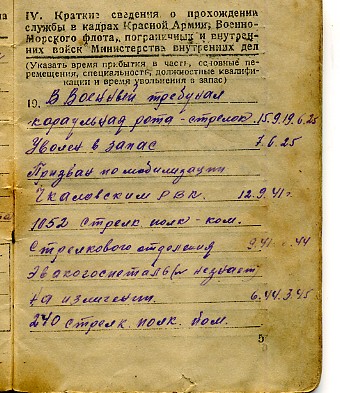 IV. Краткие сведения о прохождении
службы в кадрах Красной Армии, Военно-
Морского флота, пограничных и внутрен-
них войск Министерства внутренних дел
(Указать время прибытия в часть, основные пе-
ремещения, специальность, должностные квалифи-
кации и время увольнения в запас)
19. В Военный трибунал
караульная рота - стрелок 15.9.19 6.25
Уволен в запас 7.6.25
Призван по мобилизации
Чкаловским РВК. 12.9.41 г.
1052 стрелк. полк - ком.
Стрелкового отделения 9.41 44
Эвакогоспиталь (№ незнает)
на излечении. 6.44.3.45
240 стрелк. полк. пом.
5